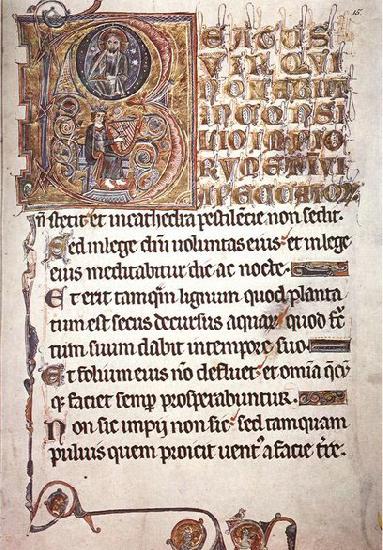 15.
BEATUS
VIR QVI
NON ABIIT
IN CONSI
LIO IMPIO
RVM ET IN VI
A PECCATOR
ñ stetit et in cathedra pestilẽcie non sedit.
Sed in lege dñi voluntas eius et in lege
eius meditabitur die ac nocte.
Et erit tamq̃m lignum quod planta
tum est secus decursus aquar quod fc̃
tum suum dabit in tempore suo
Et folium eius nõ defluet et omĩa q̃cũ
q; faciet semp̱ prosperabuntur.
Non sic impij non sic sed tamquam
puluis quem proicit uent' a facie tr̃e.